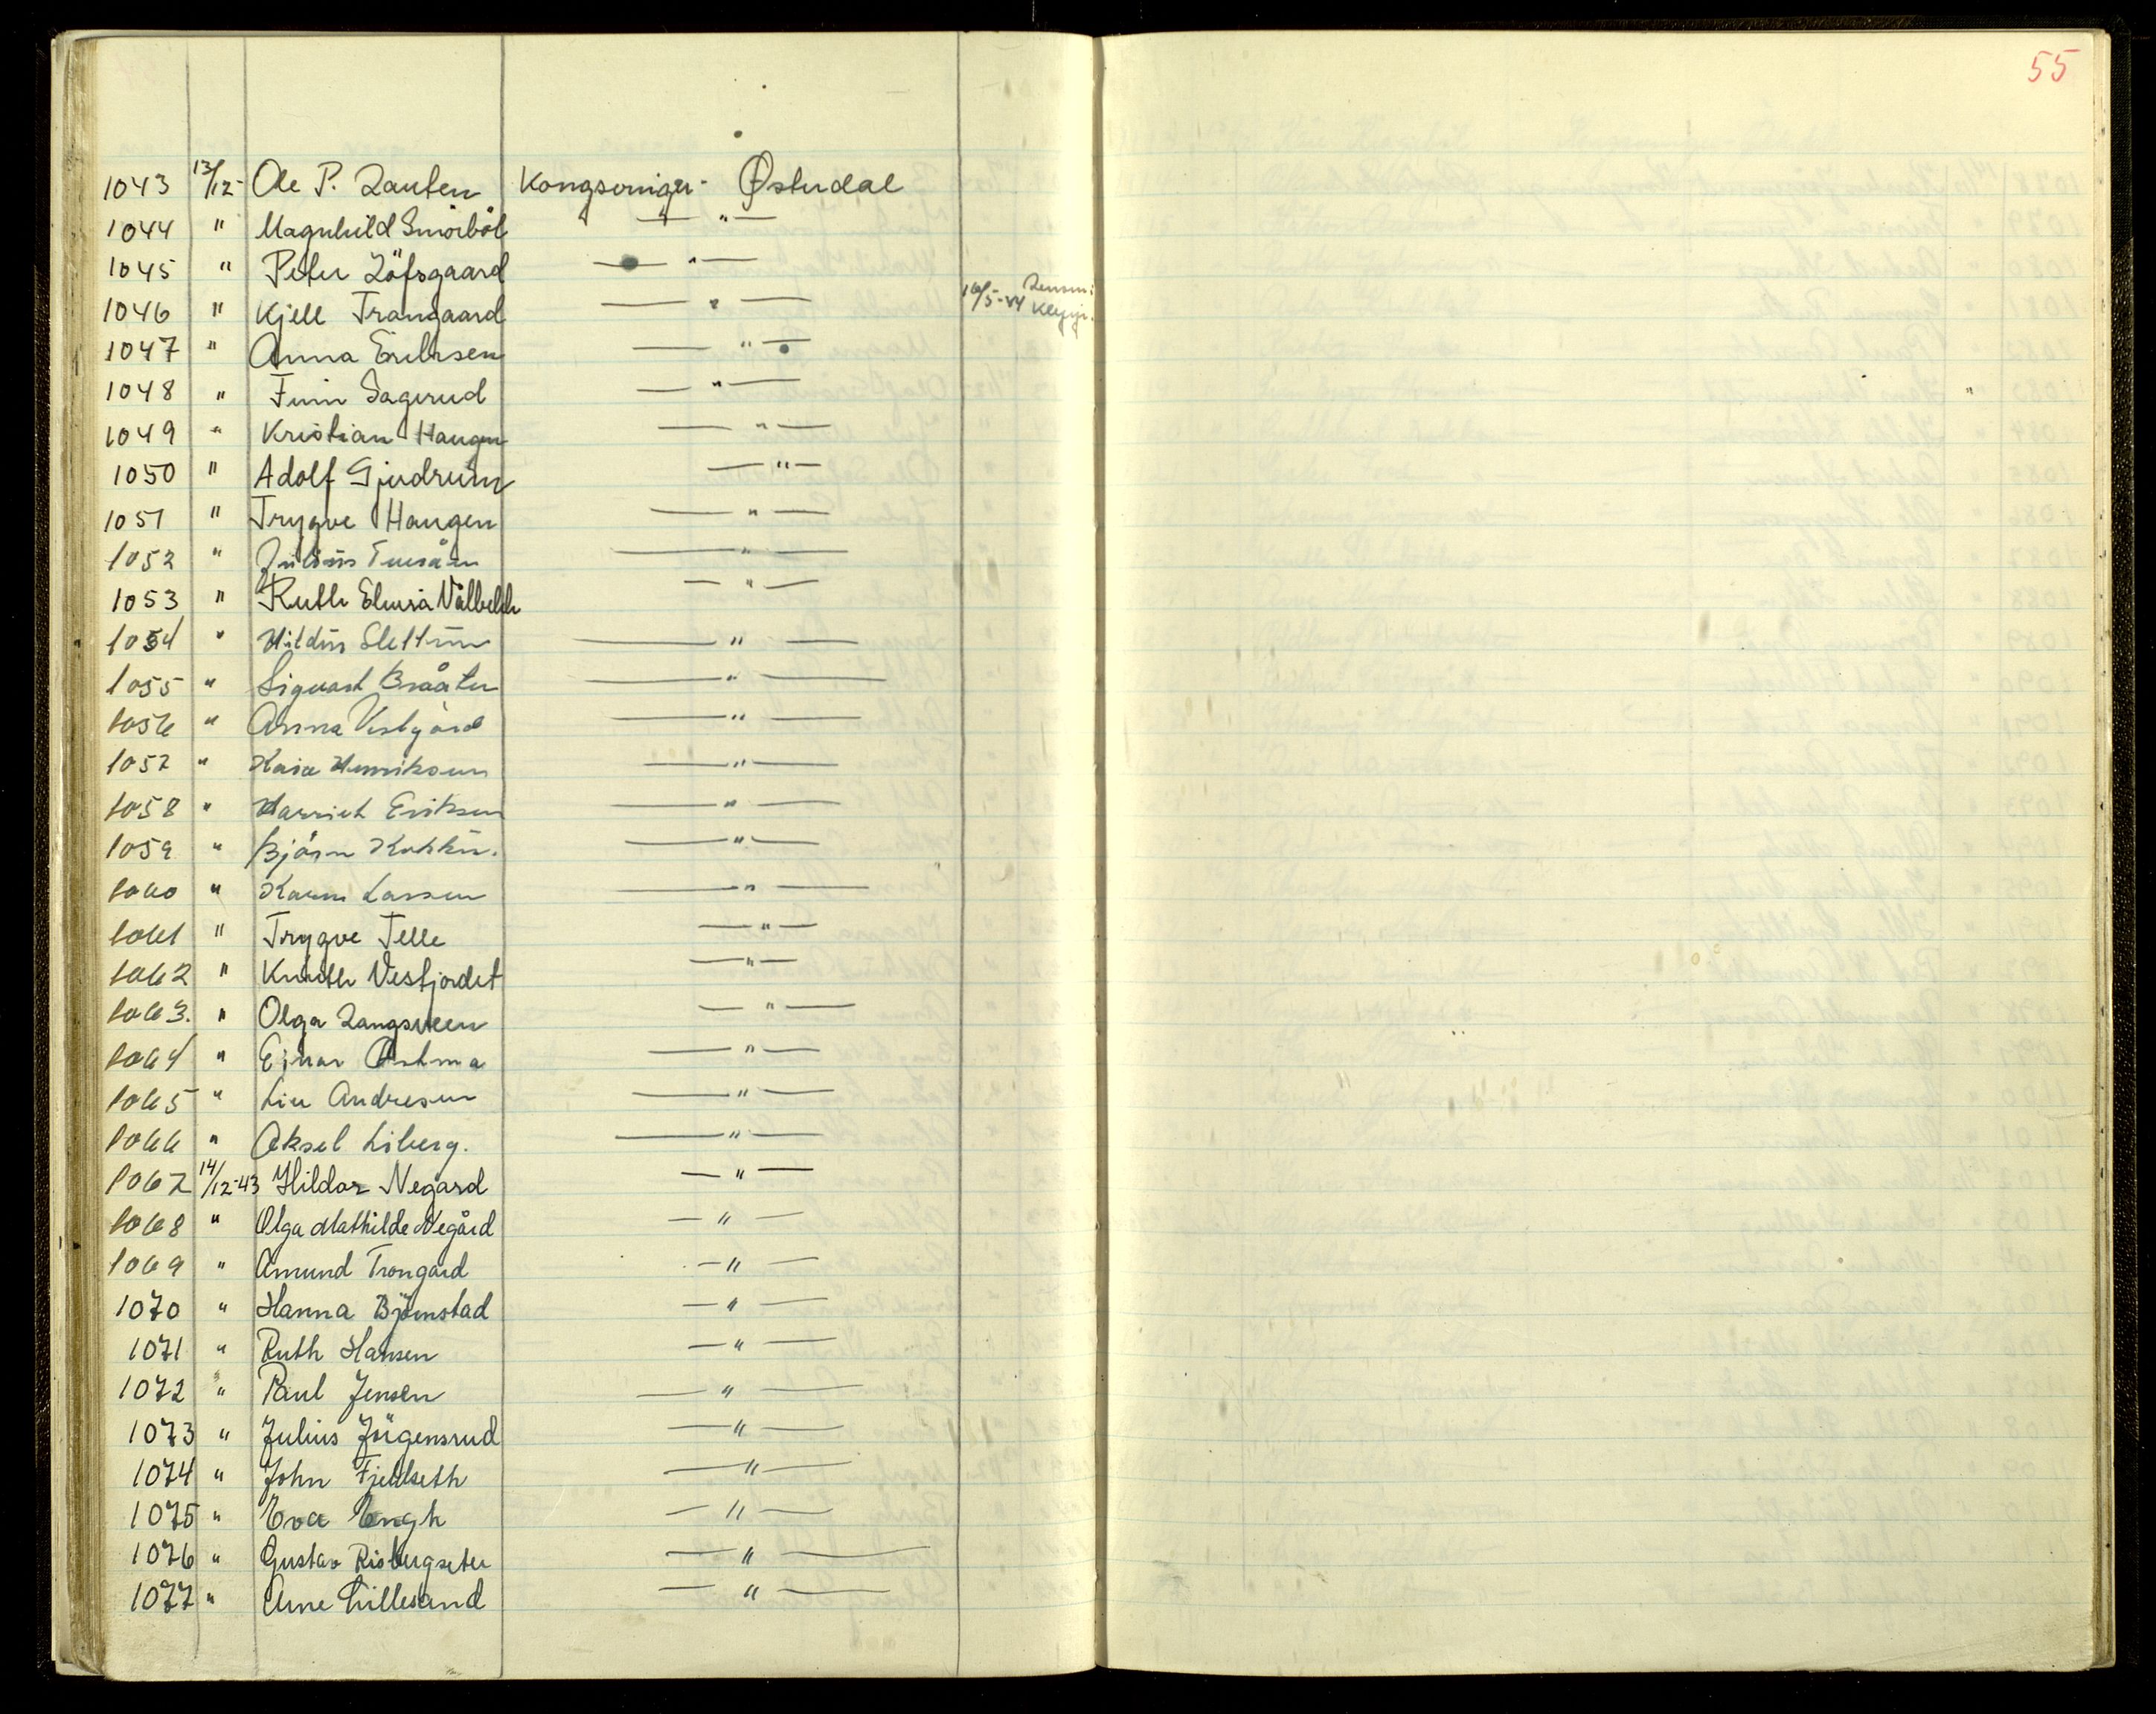 55
1043 13/12- Ole P. Lauten Kongsvinger- Østerdal
1044 " Magnhild Smörböl —"—
1045 " Peter Löfsgaard —"—
1046 " Kjell Trangaard —"— 16/5-44
1047 " Anna Eriksen —"—
1048 " Finn Sagerud —"—
1049 " Kristian Haugen —"—
1050 " Adolf Gjerdrum —"—
1051 " Trygve Haugen —"—
1052 " Julius —"—
1053 " Ruth —"—
1054 " —"—
1055 " Sigvart Bråten —"—
1056 " Anna Vestgård —"—
1057 " Kaia Henriksen —"—
1058 " Harriet Eriksen —"—
1059 " Björn —"—
1060 " Karen Larsen —"—
1061 " Trygve Telle —"—
1062 " Vestjordet —"—
1063. " Olga Langsveen —"—
1064 " Einar —"—
1065 " Liv Andresen —"—
1066 " Aksel Liberg. —"—
1067 14/12-43 Hildar Negard —"—
1068 " Olga Mathilde Negård —"—
1069 " Amund Trongård —"—
1070 " Hanna Björnstad —"—
1071 " Ruth Hansen —"—
1072 " Paul Jensen —"—
1073 " Julius Jörgensrud —"—
1074 " John Fjeldseth —"—
1075 " Eva Engh —"—
1076 " Gustav Risbergseter —"—
1077 " Arne Lillesand —"—